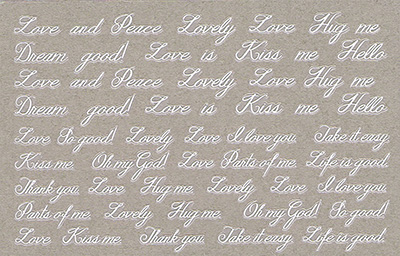 Love and Peace Lovely Love Hug me
Dream good! Love is Kiss me Hello
Love and Peace Lovely Love Hug me
Dream good! Love is Kiss me Hello
Love So good! Lovely Love I love you. Take it easy.
Kiss me. Oh my God! Love Parts of me. Life is good.
Thank you. Love Hug me. Lovely Love I love you.
Parts of me. Lovely Hug me. Oh my God! So good!
Love Kiss me. Thank you. Take it easy. Life is good.